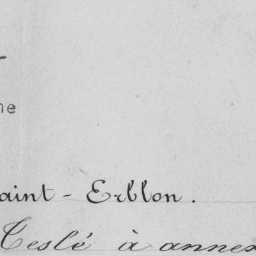 ne
aint - Erblon.
Ceslé à annex